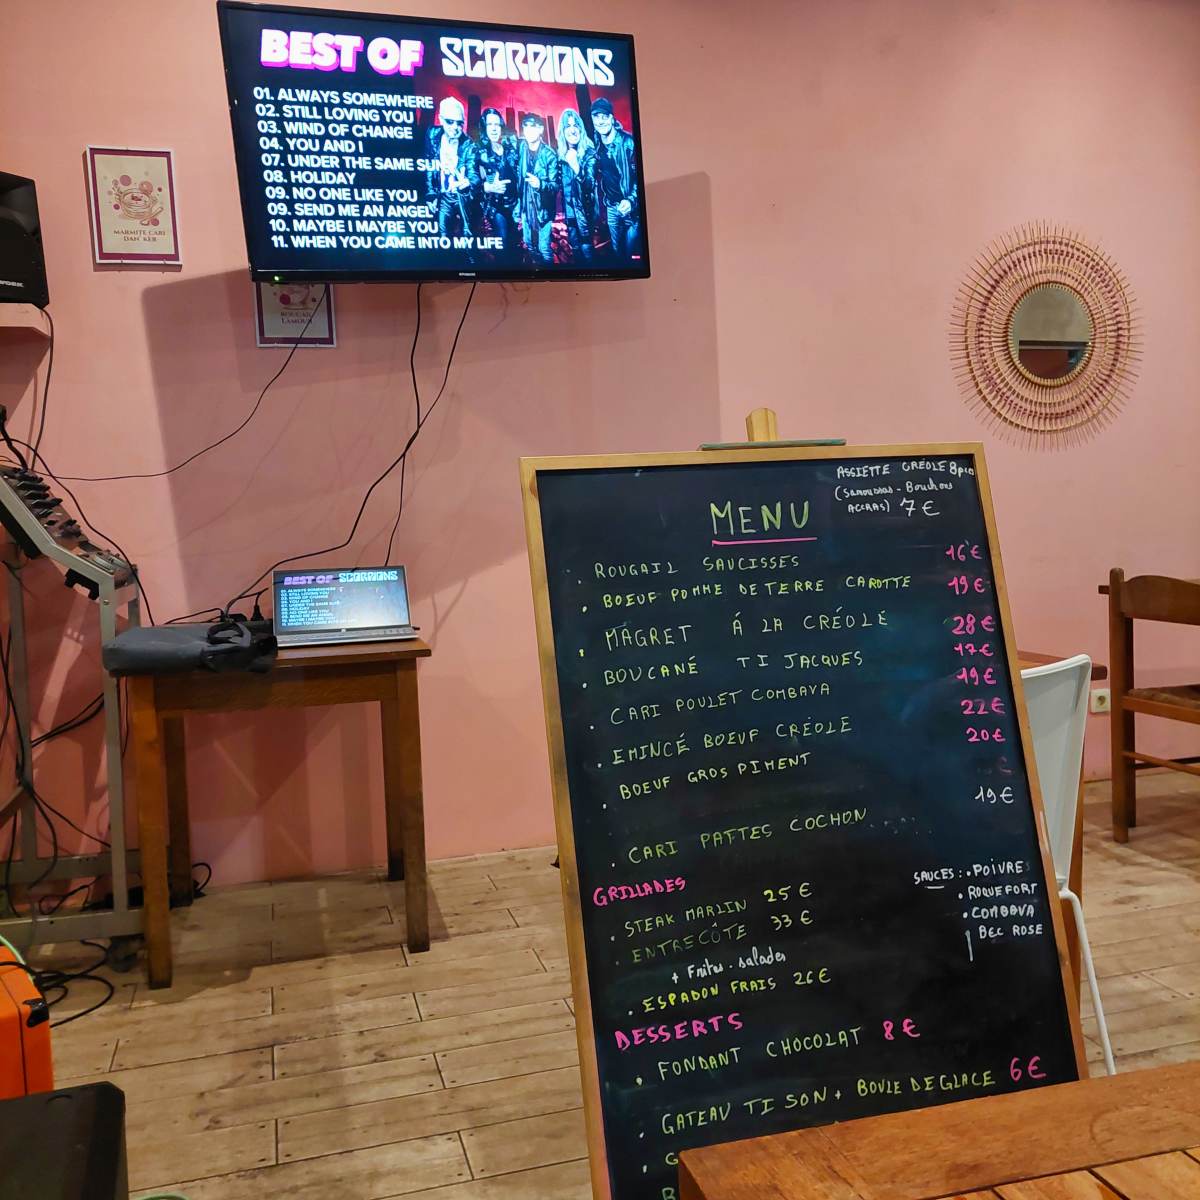 BEST OF SCORPIONS
01. ALWAYS SOMEWHERE
02. STILL LOVING YOU
03. WIND OF CHANGE
04. YOU AND I
07. UNDER THE SAME SUN
08. HOLIDAY
09. NO ONE LIKE YOU
09. SEND ME AN ANGEL
10. MAYBE I MAYBE YOU
11. WHEN YOU CAME INTO MY LIFE
MARMITE CARI
DAN' KER
ROUGAIL
BEST OF SCORPIONS
ALWAYS SOMEWHERE
STILL LOVING YOU
WIND OF CHANGE
YOU AND I
UNDER THE SAME SUN
HOLIDAY
NO ONE LIKE YOU
SEND ME AN ANGEL
MAYBE I MAYBE YOU
ASSIETTE CRÉOLE 8pcs
(Samoussas - Bouchons
ACCRAS) 7 €
MENU
. ROUGAIL SAUCISSES 16 €
. BOEUF POMME DE TERRE CAROTTE 19 €
. MAGRET À LA CRÉOLE 28 €
. BOUCANÉ TI JACQUES 17 €
. CARI POULET COMBAVA 19 €
. EMINCÉ BOEUF CRÉOLE 22 €
. BOEUF GROS PIMENT 20 €
. CARI PATTES COCHON 19 €
GRILLADES
. STEAK MARLIN 25 €
. ENTRECÔTE 33 €
+ Frites - salades
. ESPADON FRAIS 26 €
SAUCES : . POIVRE
. ROQUEFORT
. COMBAVA
BEC ROSE
DESSERTS
. FONDANT CHOCOLAT 8 €
. GATEAU TI SON + BOULE DE GLACE 6 €